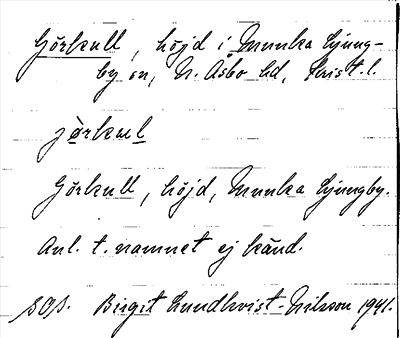 Görkull, höjd i Munka Ljung-
by sn, N. Åsbo hd, Krist. l.
jørkul
Görkull, höjd, Munka Ljungby.
Anl. t. namnet ej känd.
SOS. Birgit Lundkvist-Nilsson 1941.